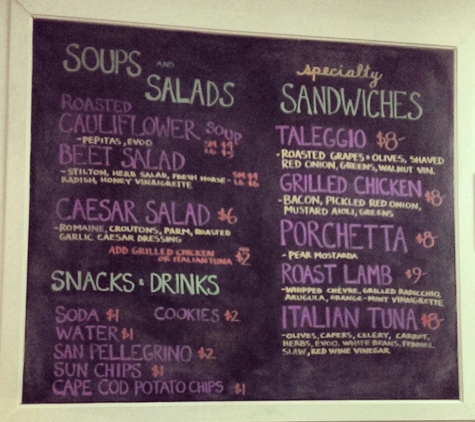 SOUPS AND
SALADS
ROASTED
CAULIFLOWER SOUP
-PEPITAS, EVOO
BEET SALAD
-STILTON, HERB SALAD, FRESH HORSE-
RADISH, HONEY VINAIGRETTE
CAESAR SALAD $6
-ROMAINE, CROUTONS, PARM, ROASTED
GARLIC CAESAR DRESSING
ADD GRILLED CHICKEN
OR ITALIAN TUNA $2
SNACKS & DRINKS
SODA $1 COOKIES $2
WATER $1
SAN PELLEGRINO $2
SUN CHIPS $1
CAPE COD POTATO CHIPS $1
specialty
SANDWICHES
TALEGGIO $8-
-ROASTED GRAPES & OLIVES, SHAVED
RED ONION, GREENS, WALNUT VIN.
GRILLED CHICKEN $8-
-BACON, PICKLED RED ONION,
MUSTARD AIOLI, GREENS
PORCHETTA $8-
-PEAR MOSTARDA
ROAST LAMB $9-
-WHIPPED CHÈVRE, GRILLED RADICCHIO,
ARUGULA, ORANGE-MINT VINAIGRETTE
ITALIAN TUNA $8-
-OLIVES, CAPERS, CELERY, CARROT,
HERBS, EVOO, WHITE BEANS, FENNEL
SLAW, RED WINE VINEGAR